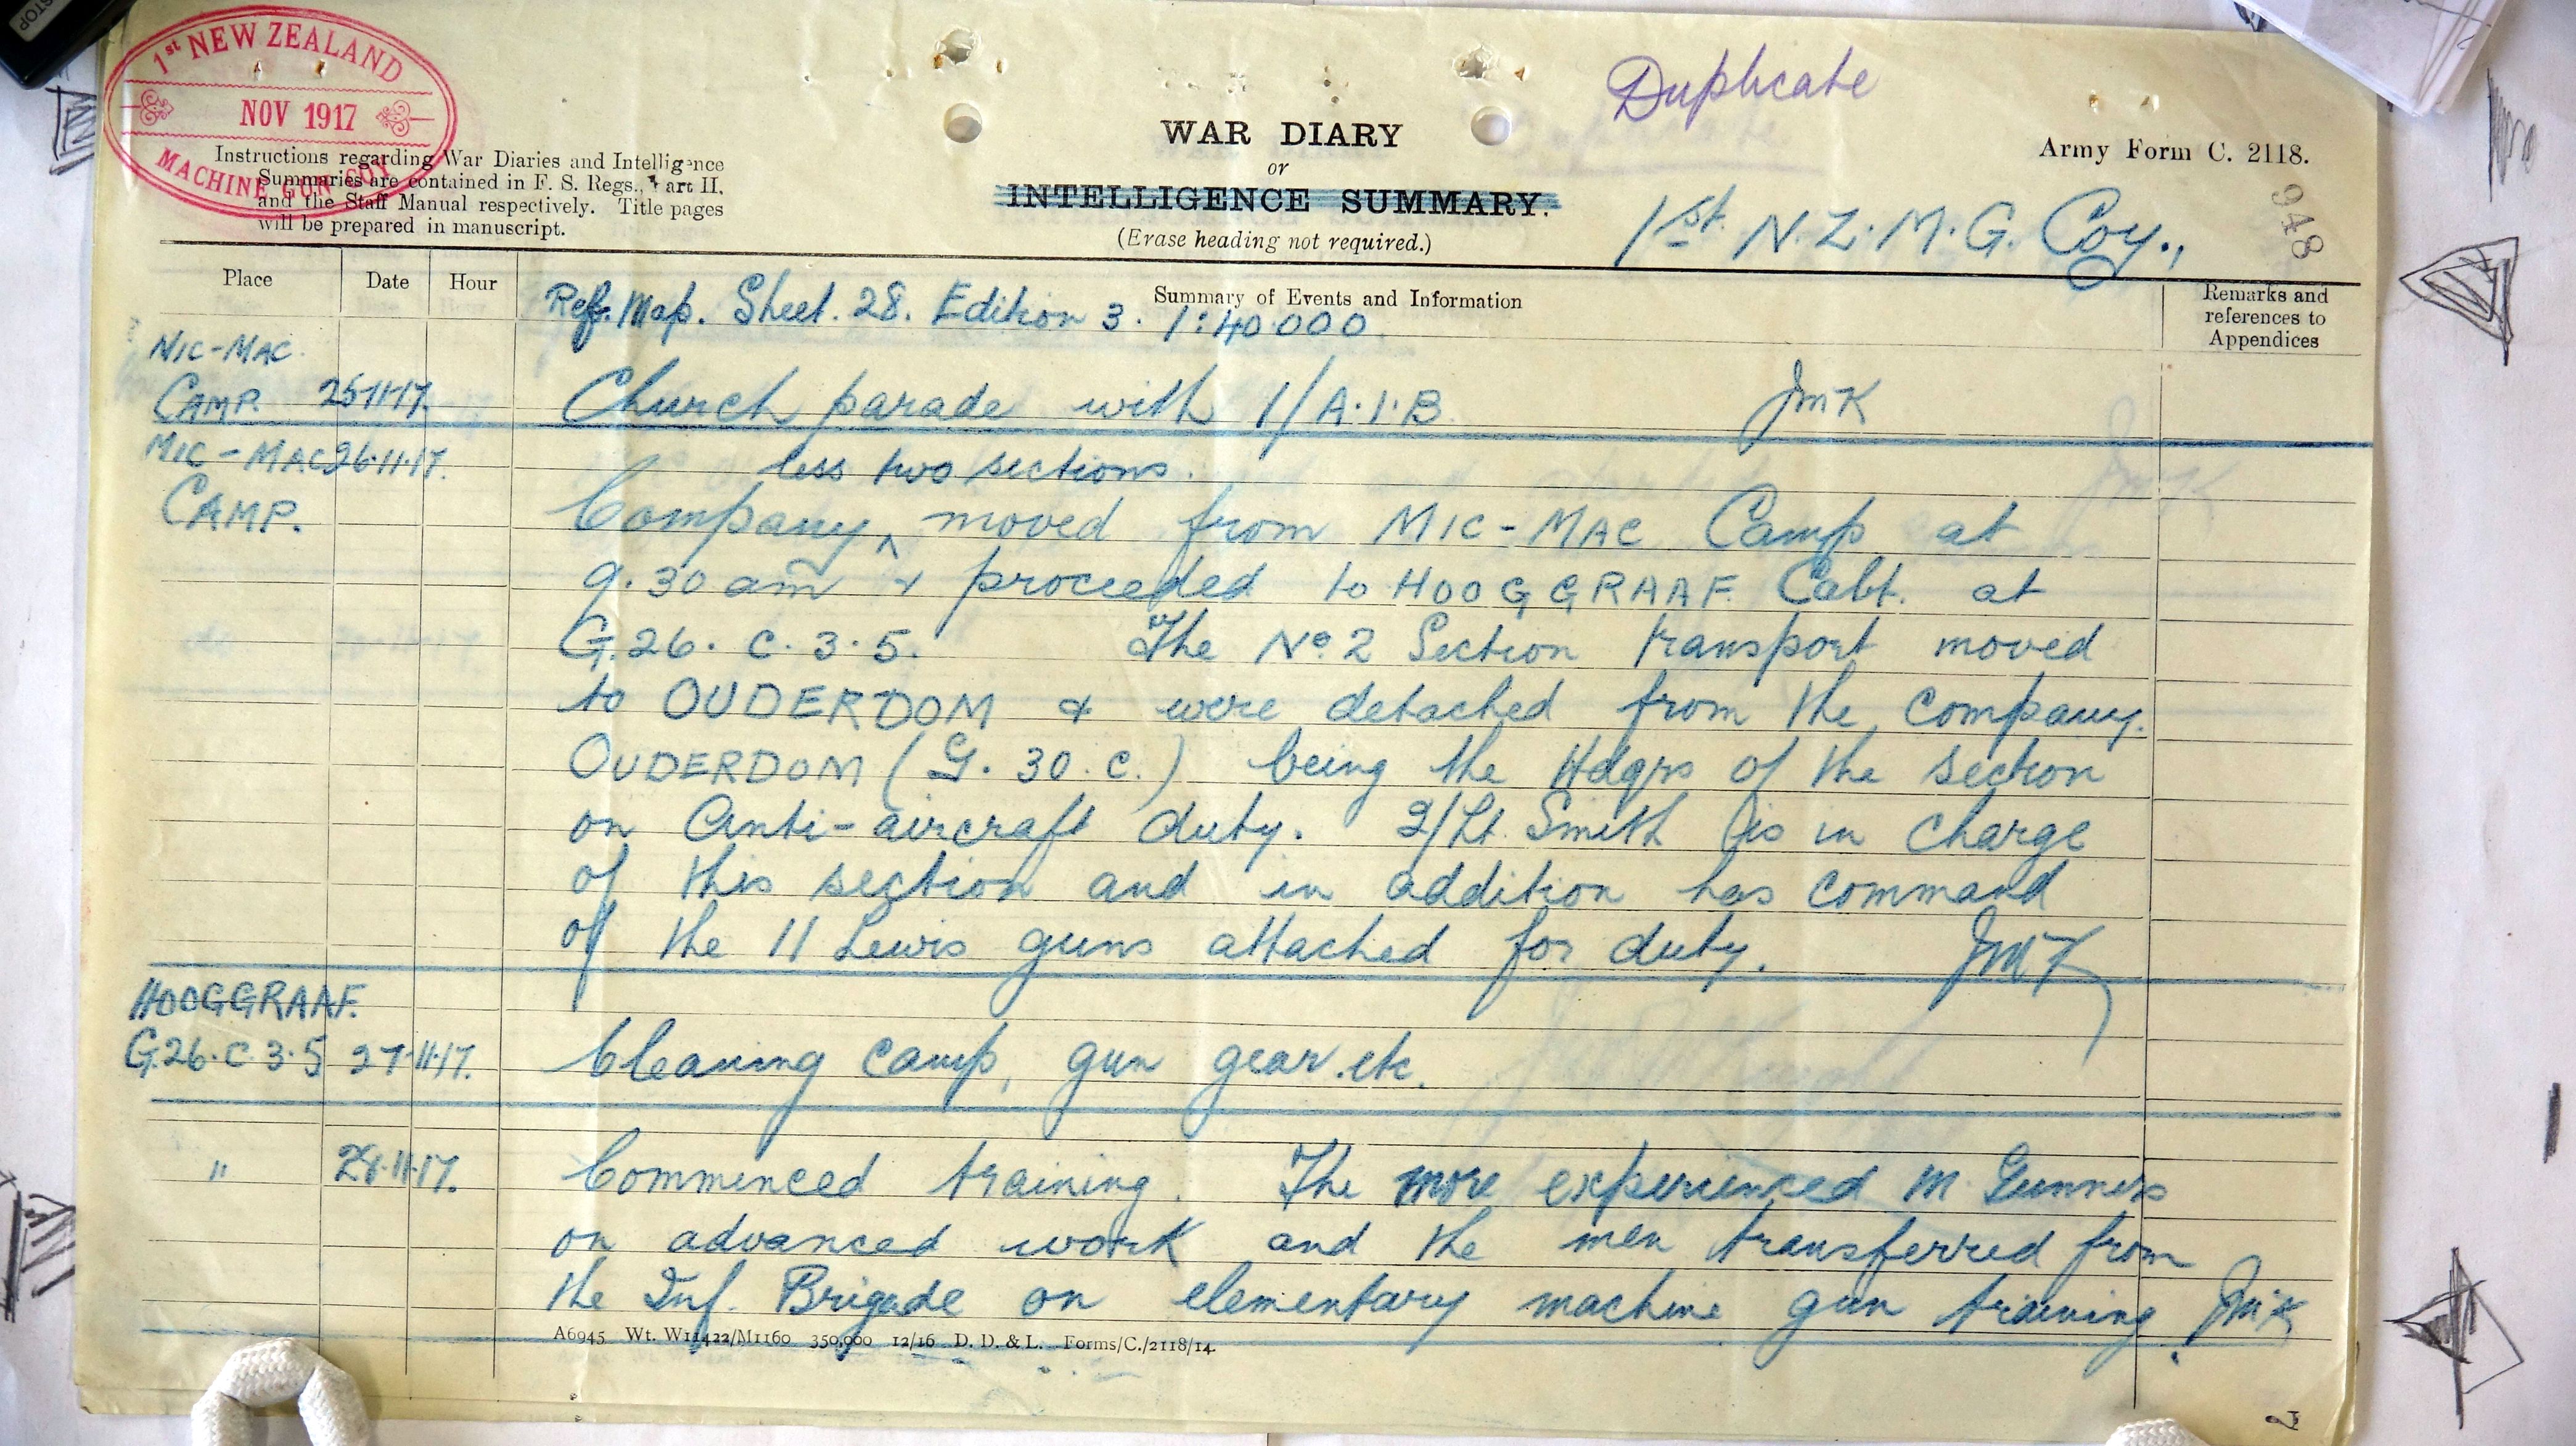 STOP
1st NEW ZEALAND
NOV 1917
MACHINE GUN COY
Duplicate
Instructions regarding War Diaries and Intelligence
Summaries are contained in F. S. Regs., Part II.
and the Staff Manual respectively. Title pages
will be prepared in manuscript.
WAR DIARY
or
INTELLIGENCE SUMMARY.
(Erase heading not required.)
Army Form C. 2118.
948
1st N.Z.M.G. Coy.,
Place Date Hour Summary of Events and Information Remarks and references to Appendices
Ref. Map. Sheet. 28. Edition 3. 1:40.000.
MIC-MAC
CAMP. 25-11-17. Church parade with 1/A.I.B. JMK
MIC-MAC 26.11.17. less two sections.
CAMP. Company ^ moved from MIC-MAC Camp at
9.30 am & proceeded to HOOGGRAAF Cabt. at
G.26.c.3.5. The No 2 Section transport moved
to OUDERDOM & were detached from the company.
OUDERDOM (G.30.c.) being the Hdqrs of the section
on Anti-aircraft duty. 2/Lt. Smith is in charge
of this section and in addition has command
of the 11 Lewis guns attached for duty. JMK
HOOGGRAAF.
G.26.c.3.5 27-11-17. Cleaning camp, gun gear etc.
" 28.11.17. Commenced training. The more experienced M. Gunners
on advanced work and the men transferred from
the Inf. Brigade on elementary machine gun training. JMK
A6945 Wt. W11422/M1160 350,000 12/16 D. D. & L. Forms/C./2118/14.
7